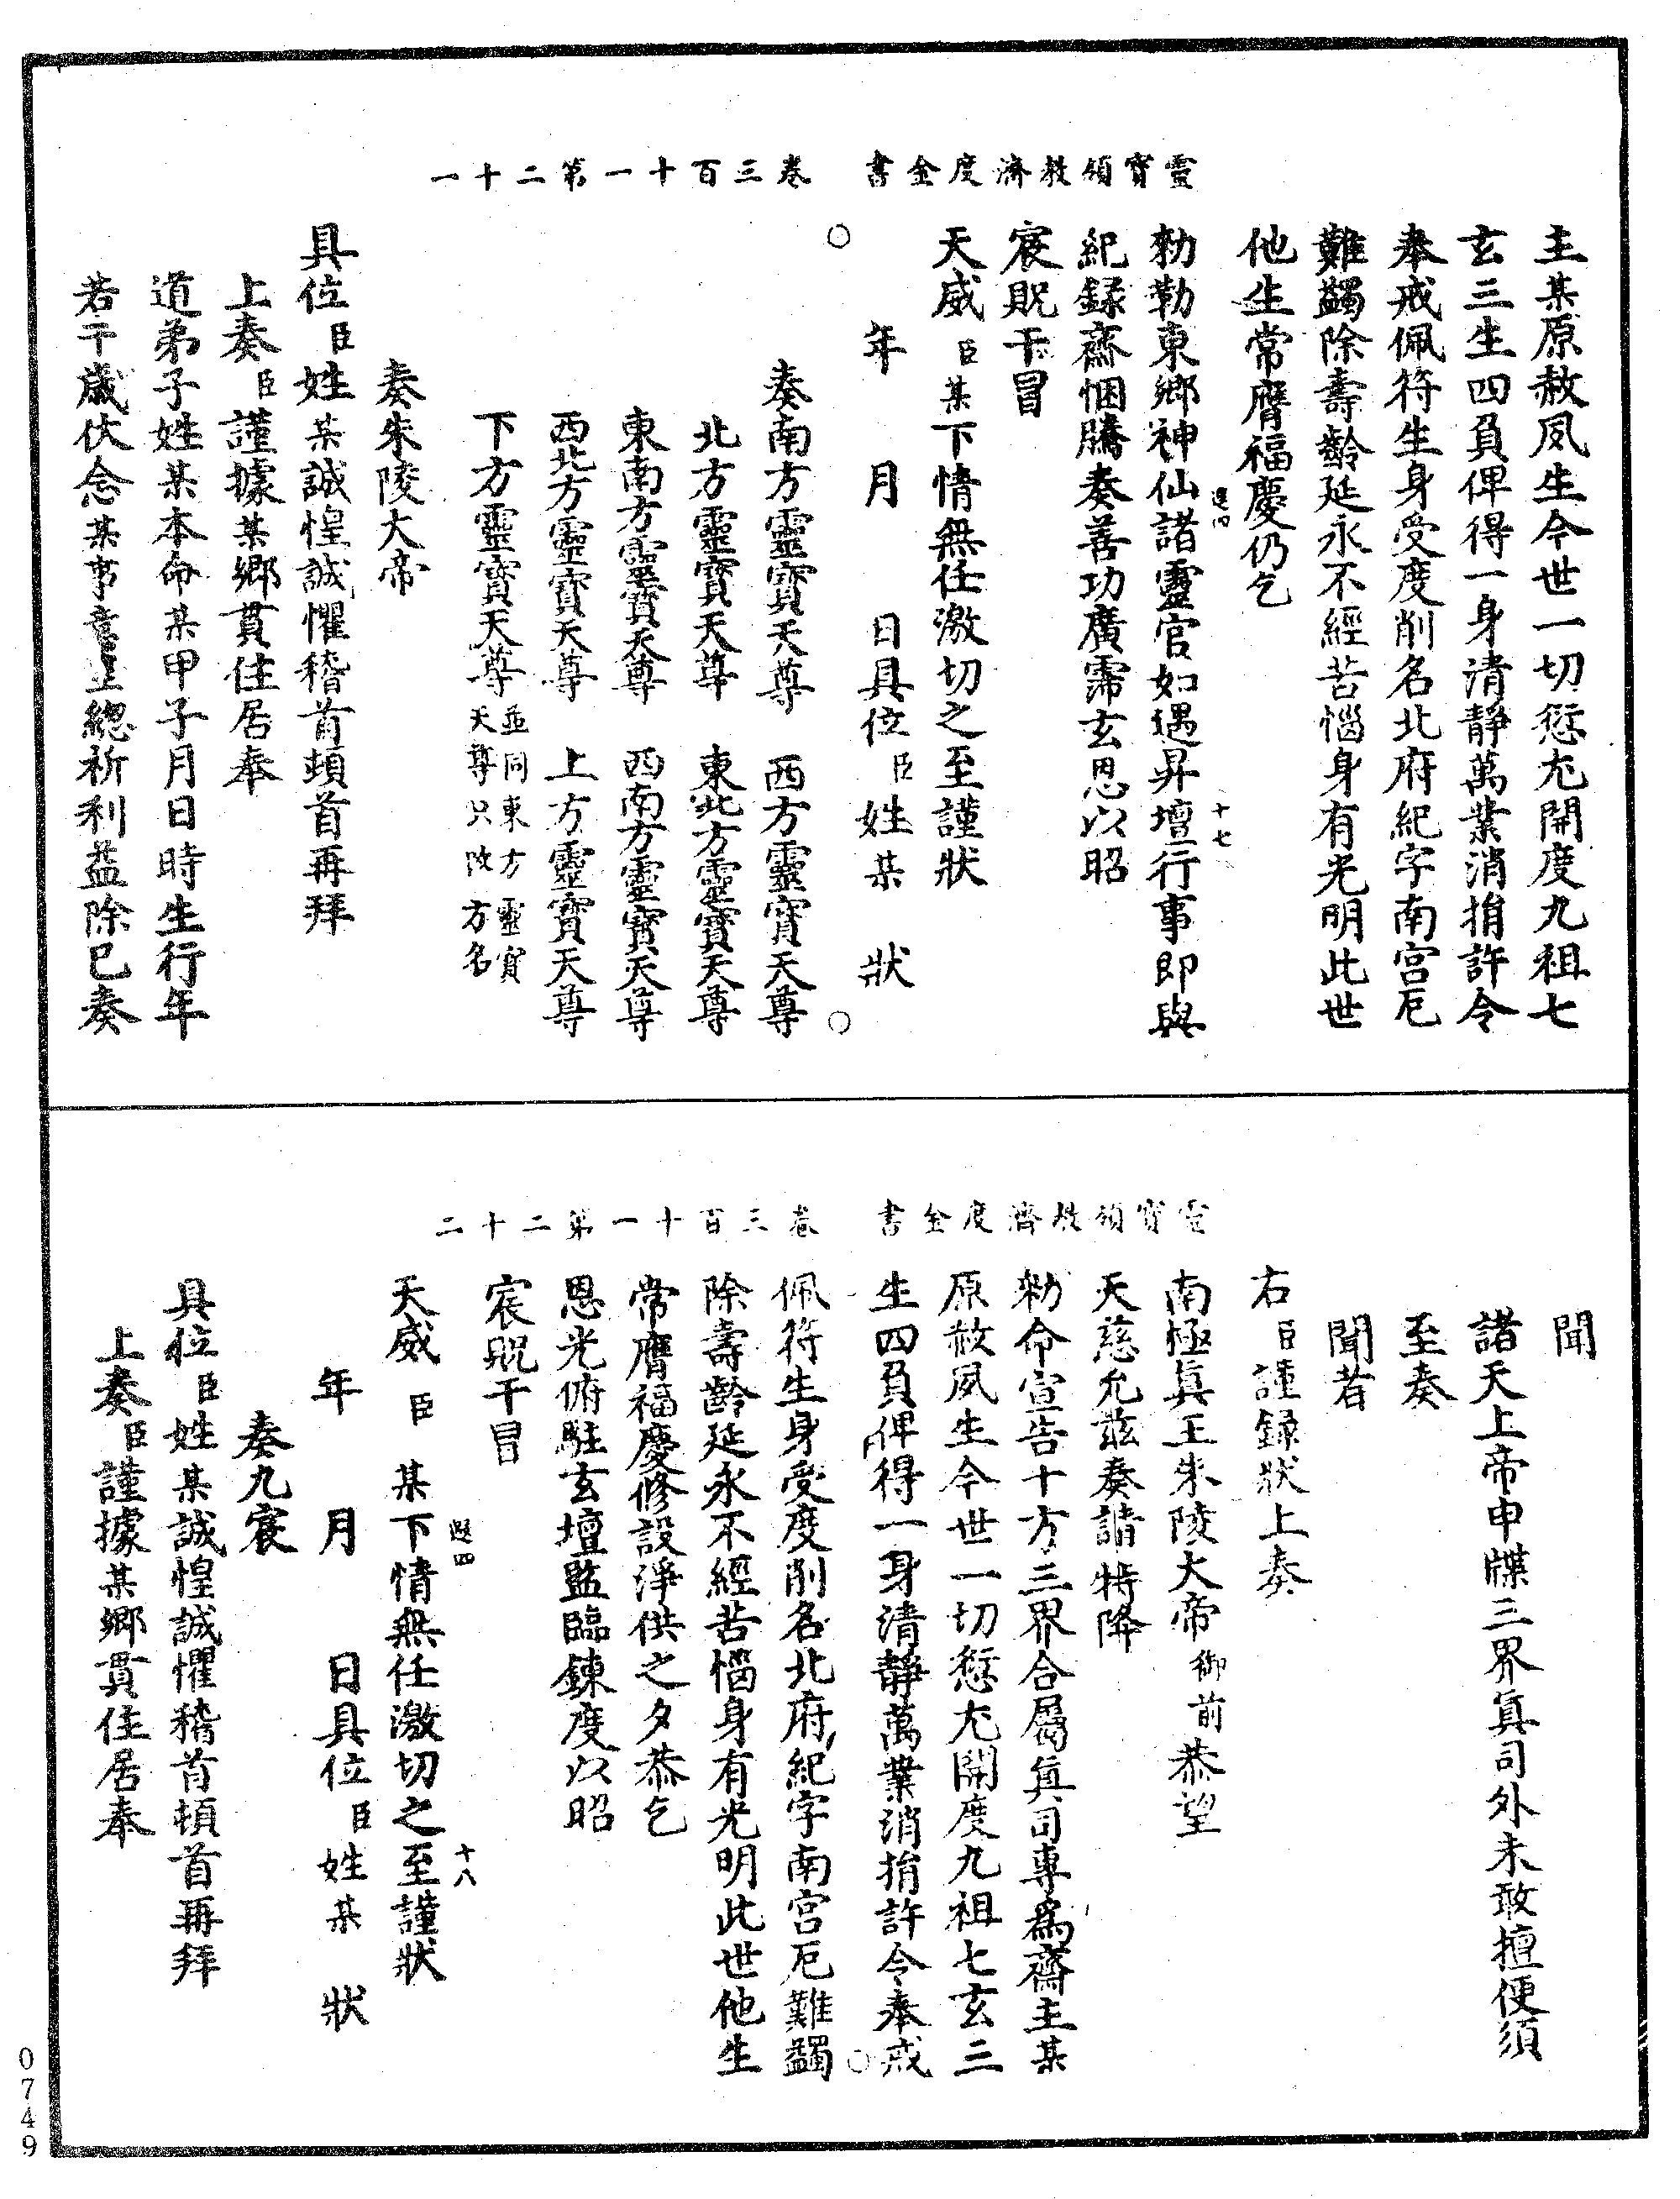 靈寶領教濟度金書　卷三百十一第二十一
主某原赦夙生今世一切愆尤開度九祖七
玄三生四負俾得一身清靜萬業消捐許令
奉戒佩符生身受度削名北府紀字南宫厄
難蠲除壽齡延永不經苦惱身有光明此世
他生常膺福慶仍乞
十七
勑勒東鄉神仙諸靈官如遇昇壇行事即與
紀録齋悃騰奏善功廣霈玄恩以昭
宸貺干冒
天威臣某下情無任激切之至謹狀
年　月　日具位臣姓某　狀
奏南方靈寶天尊　西方靈寶天尊
北方靈寶天尊　東北方靈寶天尊
東南方靈寶天尊　西南方靈寶天尊
西北方靈寶天尊　上方靈寶天尊
下方靈寶天尊並同東方靈寶天尊只改方名
奏朱陵大帝
具位臣姓某誠惶誠懼稽首頓首再拜
上奏臣謹據某鄉貫住居奉
道弟子姓某本命某甲子月日時生行年
若干歲伏念某事意至總祈利益除已奏
靈寶領教濟度金書　卷三百十一第二十二
聞
諸天上帝申牒三界真司外未敢擅便須
至奏
聞者
右臣謹録狀上奏
南極真王朱陵大帝御前恭望
天慈允兹奏請特降
勑命宣告十方三界合屬真司專爲齋主某
原赦夙生今世一切愆尤開度九祖七玄三
生四負俾得一身清靜萬業消捐許令奉戒
佩符生身受度削名北府紀字南宫厄難蠲
除壽齡延永不經苦惱身有光明此世他生
常膺福慶修設淨供之夕恭乞
恩光俯駐玄壇監臨鍊度以昭
宸貺干冒
十八
天威臣某下情無任激切之至謹狀
年　月　日具位臣姓某　狀
奏九宸
具位臣姓某誠惶誠懼稽首頓首再拜
上奏臣謹據某鄉貫住居奉
0749